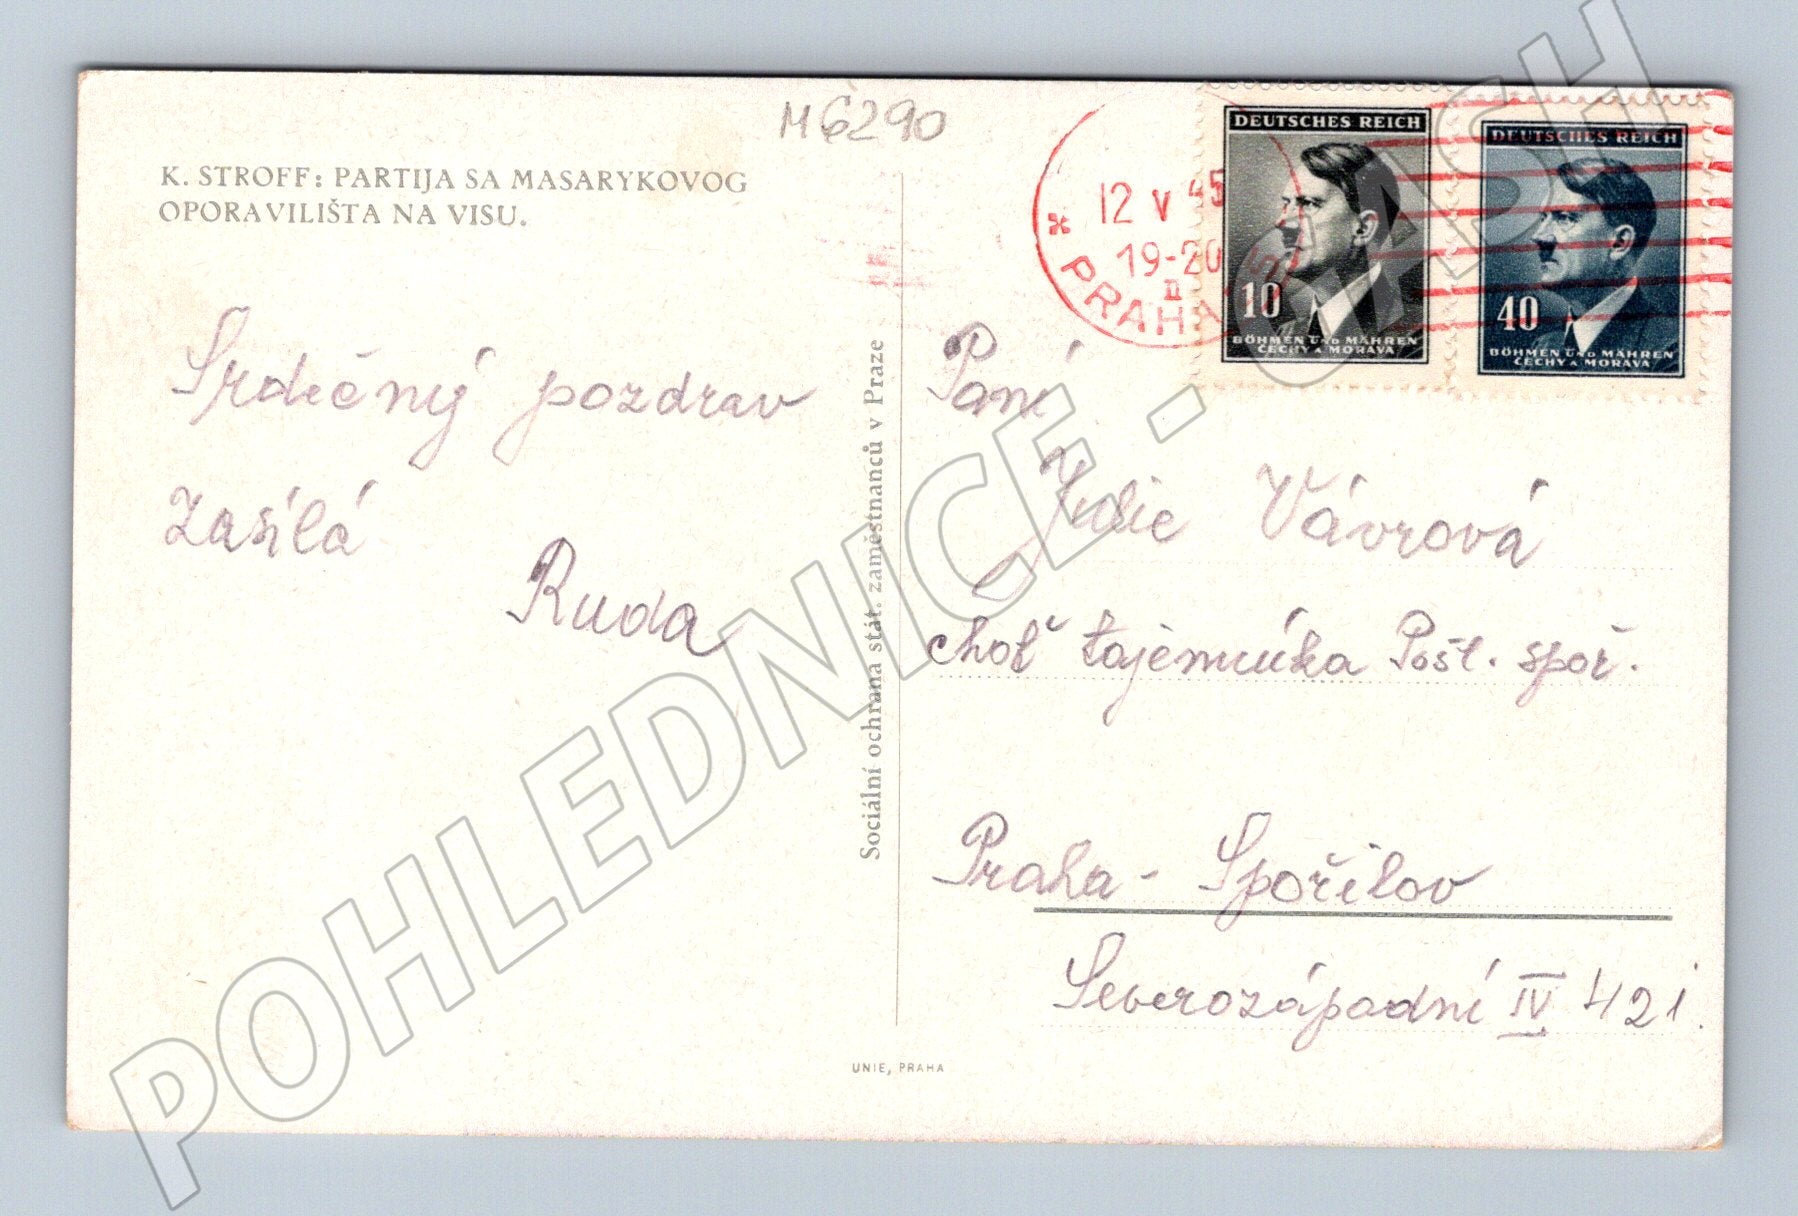 M 6290
K. STROFF: PARTIJA SA MASARYKOVOG
OPORAVILIŠTA NA VISU.
Srdečný pozdrav
zasílá
Ruda
Sociální ochrana stát. zaměstnanců v Praze
UNIE, PRAHA
12 V 45
19-20
II
* PRAHA
DEUTSCHES REICH
10
BÖHMEN UND MÄHREN
ČECHY A MORAVA
DEUTSCHES REICH
40
BÖHMEN UND MÄHREN
ČECHY A MORAVA
Paní
Julie Vávrová
choť tajemníka Pošt. spoř.
Praha - Spořilov
Severozápadní IV 421.
POHLEDNICE - CASH